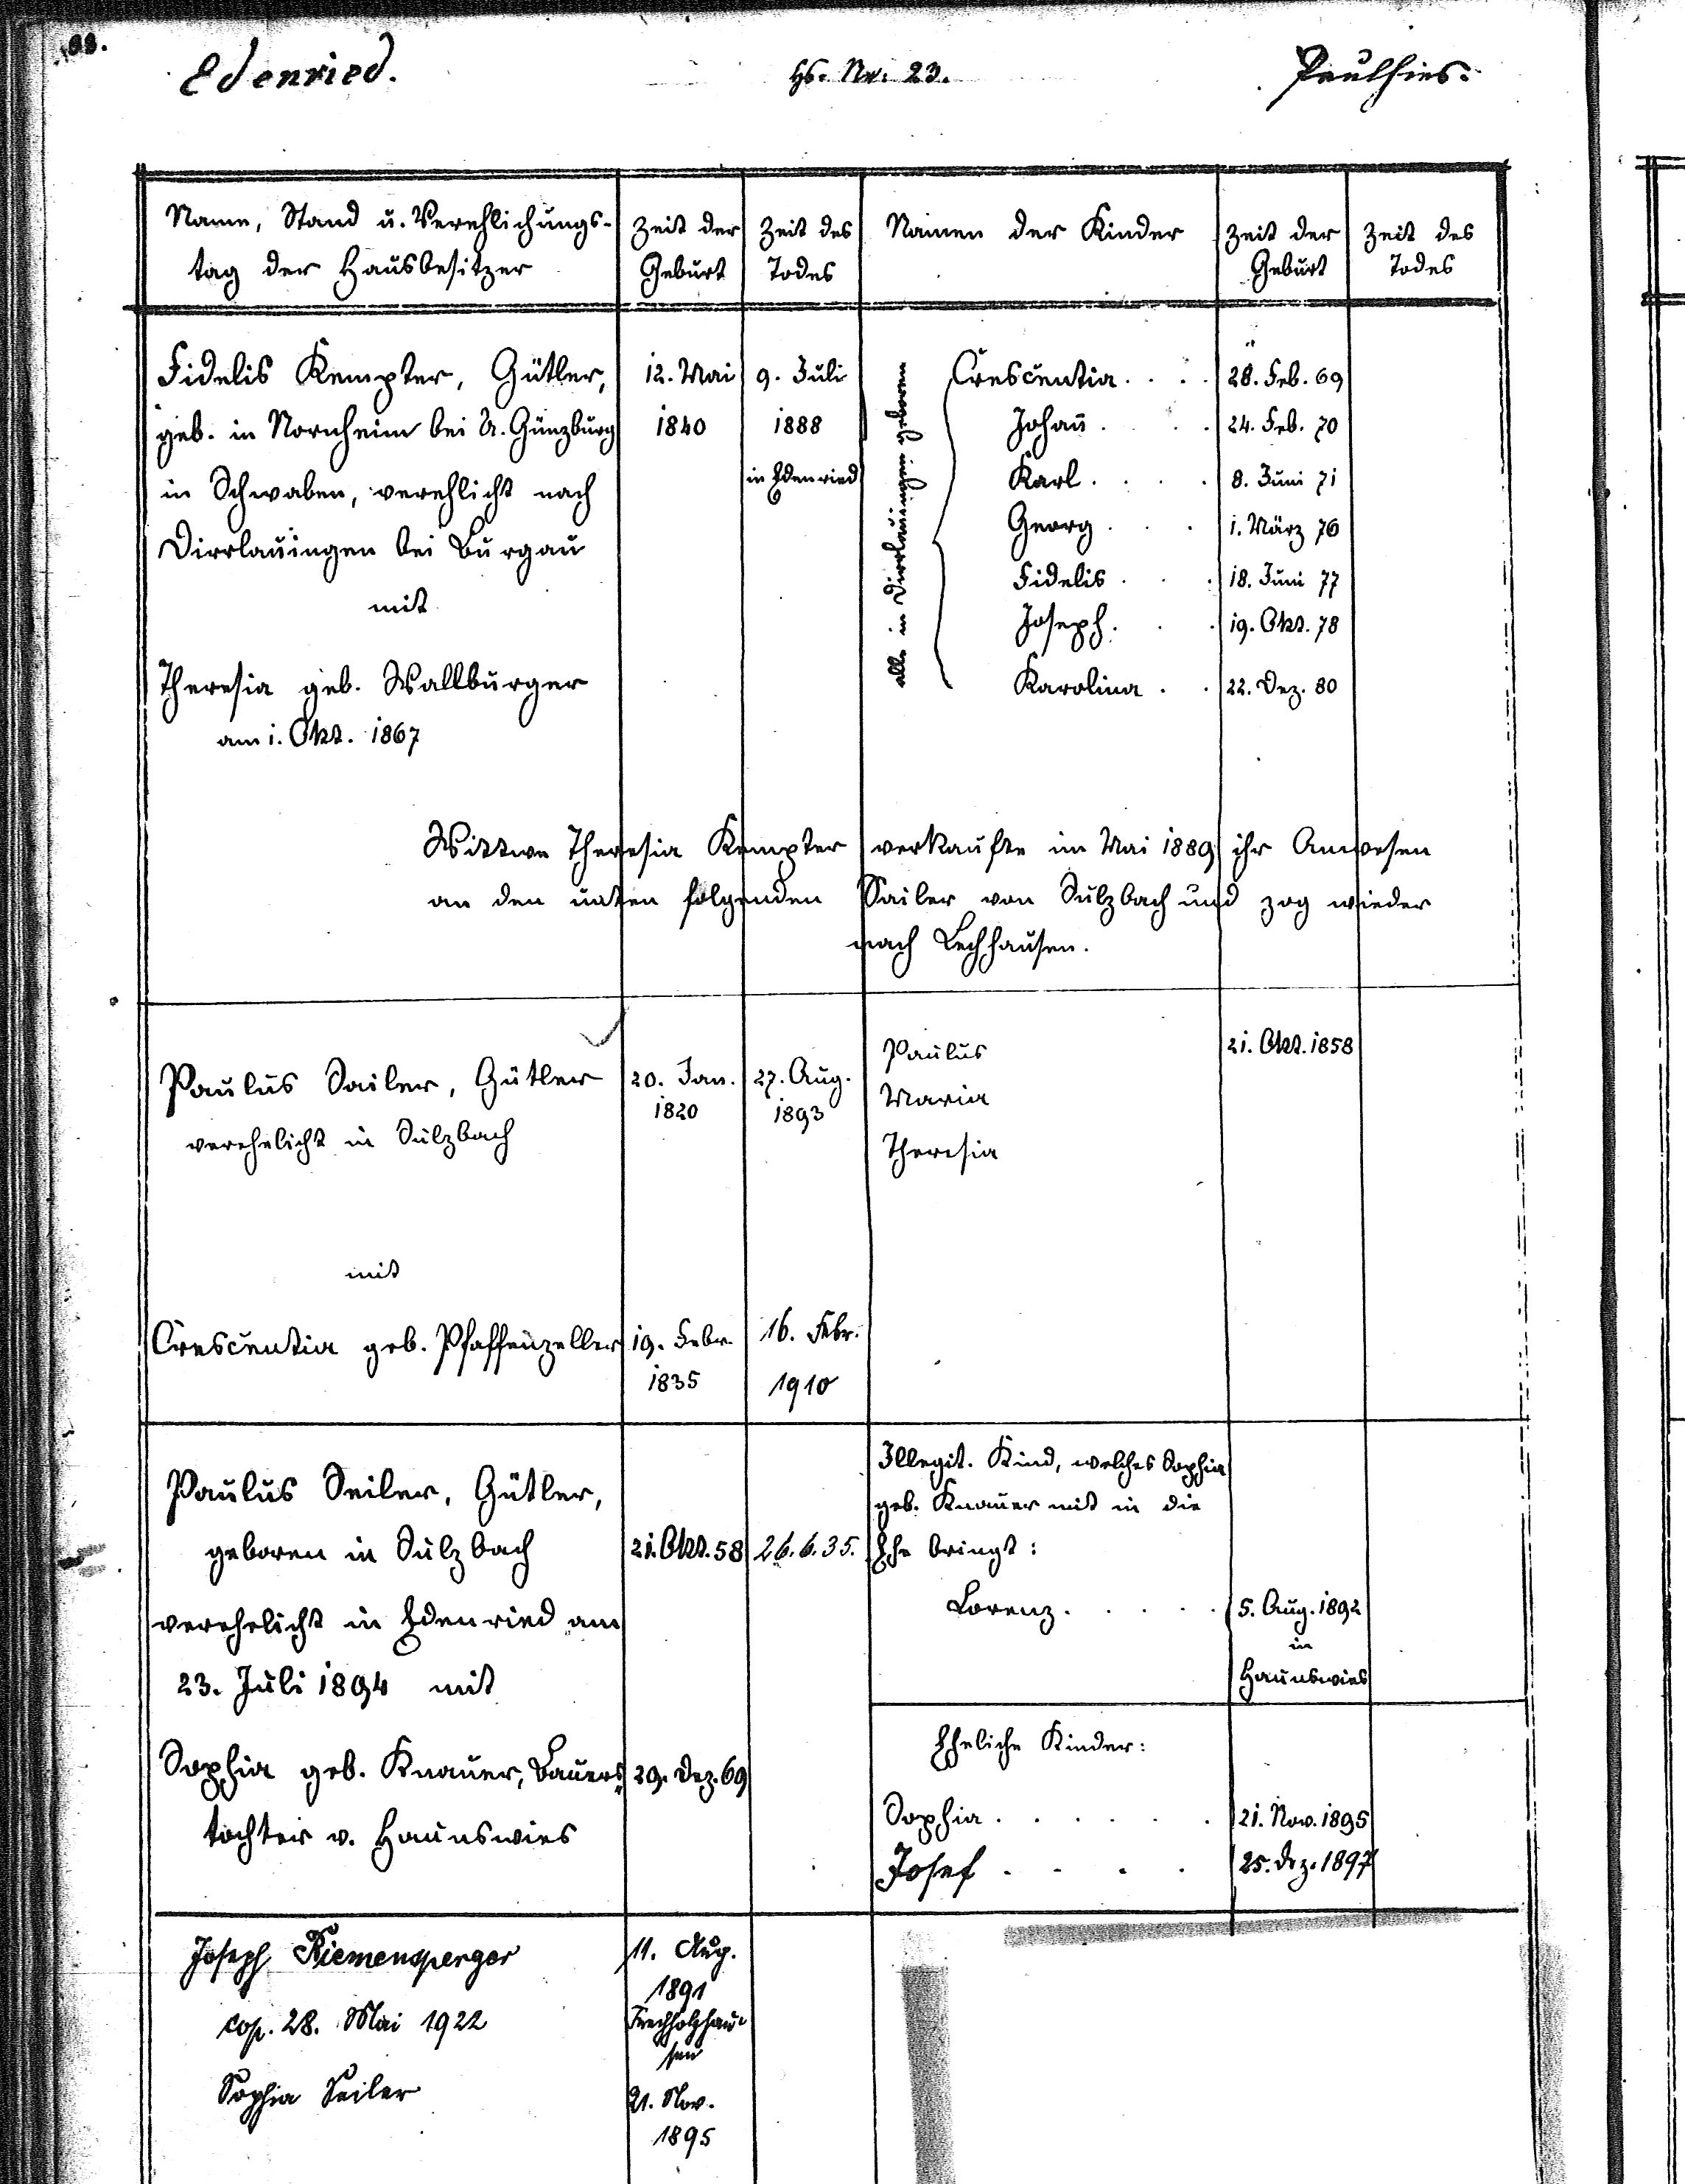 Edenried. Hs. Nr. 23. Paulhies.
Name, Stand u. Verehlichungs- Zeit der Zeit des Namen der Kinder Zeit der Zeit des
tag der Hausbesitzer Geburt Todes Geburt Todes
Fidelis Kempter, Gütler, 12. Mai 9. Juli Crescentia . . . . 28. Feb. 69
geb. in Nornheim bei U. Günzburg 1840 1888 Johañ . . . . 24. Feb. 70
in Schwaben, verehlicht nach in Edenried Karl . . . . 8. Juni 71
Dirrlauingen bei Burgau Georg . . . 1. März 76
mit Fidelis . . . 18. Juni 77
Joseph . . . 19. Okt. 78
Theresia geb. Wallburger Karolina . . 22. Dez. 80
am 1. Okt. 1867
alle in Dirrlauingen geboren
Wittwe Theresia Kempter verkaufte im Mai 1889 ihr Anwesen
an den unten folgenden Sailer von Sulzbach und zog wieder
nach Lechhausen.
Paulus 21. Okt. 1858
Paulus Sailer, Gütler 20. Jan. 27. Aug. Maria
1820 1893
verehelicht in Sulzbach Theresia
mit
Crescentia geb. Pfaffenzeller 19. Febr. 16. Febr.
1835 1910
Illegit. Kind, welches Sophia
Paulus Seiler, Gütler, geb. Knauer mit in die
geboren in Sulzbach 21. Okt. 58 26.6.35. Ehe bringt:
verehelicht in Edenried am Lorenz . . . . . 5. Aug. 1892
in
23. Juli 1894 mit Haunswies
Eheliche Kinder:
Sophia geb. Knauer, Bauers- 29. Dez. 69
tochter v. Haunswies Sophia . . . . . . 21. Nov. 1895
Josef . . . . 25. Dez. 1897
Joseph Riemensperger 11. Aug.
1891
cop. 28. Mai 1922 Frechholzhau-
sen
Sophia Seiler 21. Nov.
1895